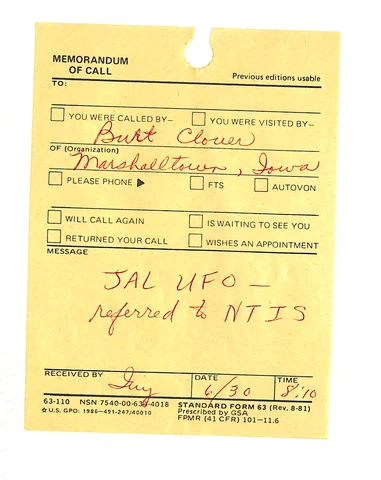 MEMORANDUM
OF CALL
Previous editions usable
TO:
YOU WERE CALLED BY—
YOU WERE VISITED BY—
Burt Clover
OF (Organization)
Marshalltown, Iowa
PLEASE PHONE ▶
FTS
AUTOVON
WILL CALL AGAIN
IS WAITING TO SEE YOU
RETURNED YOUR CALL
WISHES AN APPOINTMENT
MESSAGE
JAL UFO —
referred to NTIS
RECEIVED BY
DATE
6/30
TIME
8:10
63-110 NSN 7540-00-634-4018
STANDARD FORM 63 (Rev. 8-81)
Prescribed by GSA
☆ U.S. GPO: 1986-491-247/40010
FPMR (41 CFR) 101-11.6